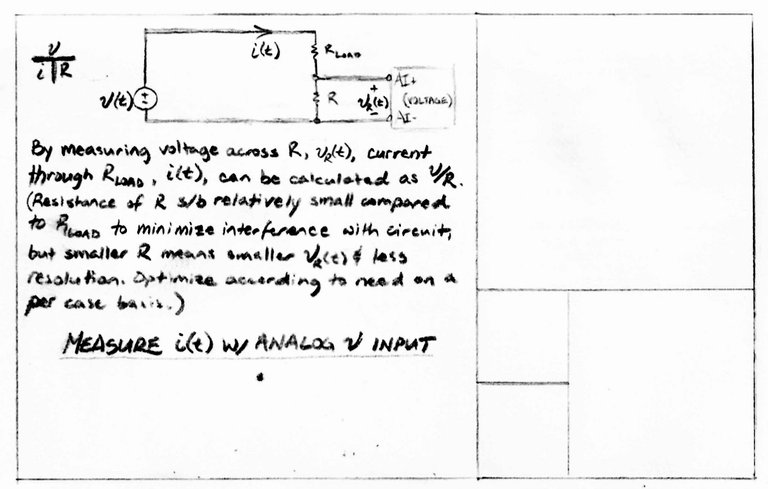 v
i R
i(t)
RLOAD
v(t)
R
+
vR(t)
-
AI+
(VOLTAGE)
AI-
By measuring voltage across R, vR(t), current
through RLOAD, i(t), can be calculated as v/R.
(Resistance of R s/b relatively small compared
to RLOAD to minimize interference with circuit,
but smaller R means smaller vR(t) & less
resolution. Optimize according to need on a
per case basis.)
MEASURE i(t) W/ ANALOG v INPUT